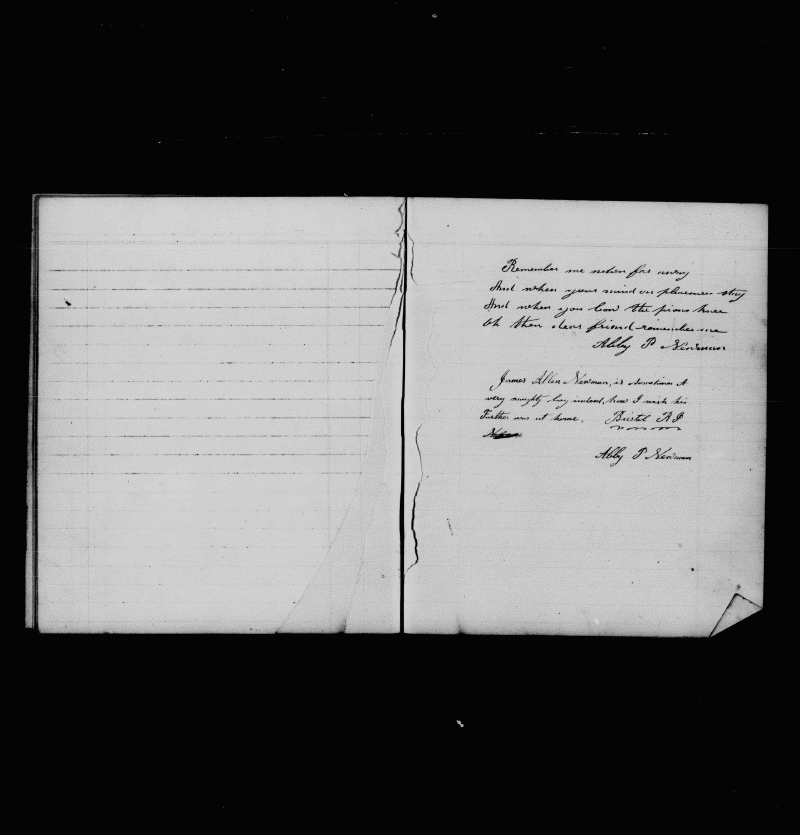 Remember me when far away
And when your mind on pleasures stray
And when you bow the pious knee
Oh then dear friend remember me
Abby P Newman
James Allen Newman, is sometimes A
very naughty boy indeed, how I wish his
Farther was at home. Bristol R I
Abby P Newman